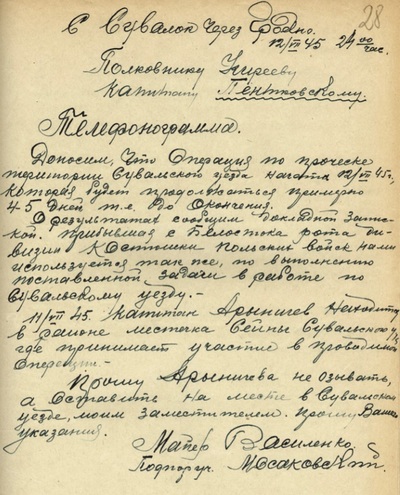 28
С Сувалок через Гродно.
12/VII 45 24 00 час.
Полковнику Кирееву
капитану Пентковскому.
Телефонограмма.
Доносим, что операция по проческе
территории Сувальского уезда начата 12/VII 45 г.,
которая будет продолжаться примерно
4-5 дней т.е. до окончения.
О результатах сообщим докладной запис-
кой. Прибывшая с Белостока рота ди-
визии Костюшки Польских войск нами
используется так же, по выполнению
поставленной задачи в работе по
Сувальскому уезду.-
11/VII 45 капитан Арынычев находится
в районе местечка Сейны Сувальского
где принимает участие в проводимой
операции.-
Прошу Арынычева не озывать,
а оставить на месте в Сувалском
уезде, моим заместителем. Прошу Ваших
указаний.
Майор Василенко.
Подпоруч. Мосаковский.